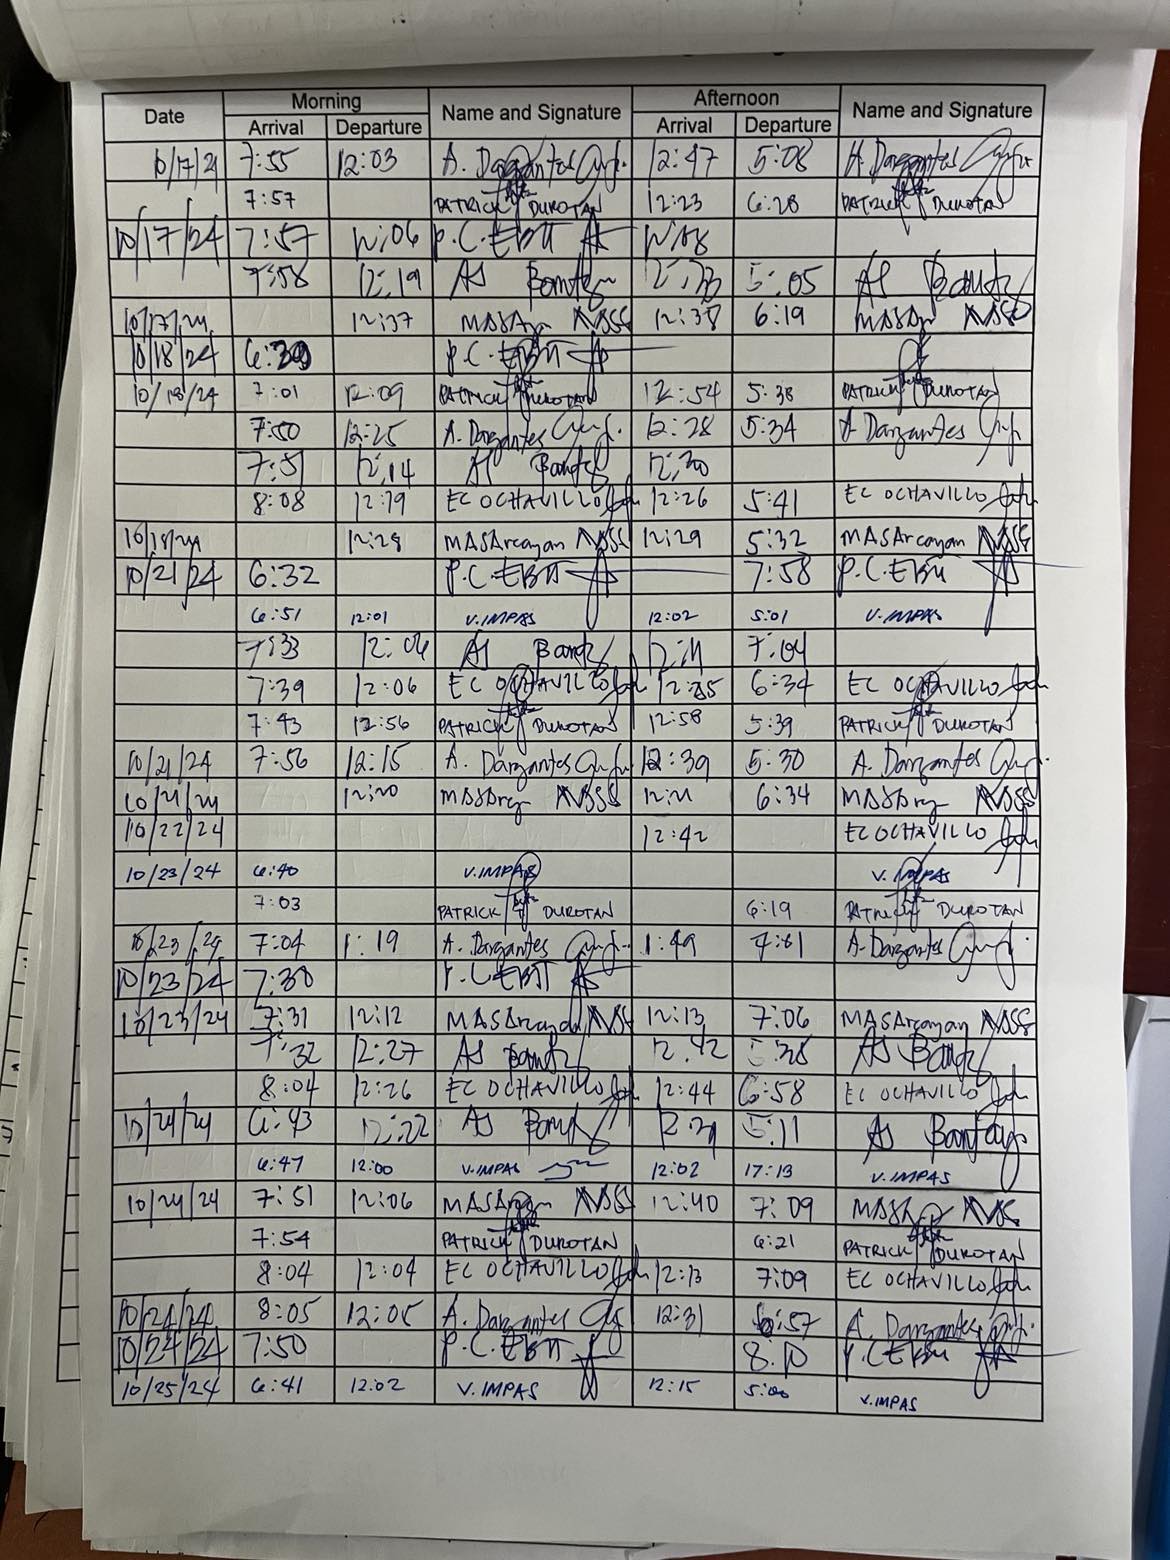 Date Morning Name and Signature Afternoon Name and Signature
Arrival Departure Arrival Departure
10/17/24 7:55 12:03 A. Dargantes 12:47 5:08 A. Dargantes
7:57 PATRICK DUROTAN 12:23 6:28 PATRICK DUROTAN
10/17/24 7:57 12:06 P.C. EBIT
7:58 12:19 AS 5:05 AS
10/17/24 12:37 12:38 6:19
10/18/24 P.C. EBIT
10/18/24 7:01 12:09 PATRICK DUROTAN 12:54 5:38 PATRICK DUROTAN
7:50 12:25 A. Dargantes 12:28 5:34 A. Dargantes
7:51 12:14 AS 12:20
8:08 12:19 EC OCHAVILLO 12:26 5:41 EC OCHAVILLO
10/18/24 12:28 MASArcayan 12:29 5:32 MASArcayan
10/21/24 6:32 P.C. EBIT 7:58 P.C. EBIT
6:51 12:01 V. IMPAS 12:02 5:01 V. IMPAS
7:33 12:06 AS 12:11 7:04
7:39 12:06 EC OCHAVILLO 6:34 EC OCHAVILLO
7:43 12:56 PATRICK DUROTAN 12:58 5:39 PATRICK DUROTAN
10/21/24 7:56 12:15 A. Dargantes 12:39 5:30 A. Dargantes
10/21/24 12:20 12:21 6:34
10/22/24 12:42 EC OCHAVILLO
10/23/24 6:40 V. IMPAS V. IMPAS
7:03 PATRICK DUROTAN 6:19 PATRICK DUROTAN
10/23/24 7:04 1:19 A. Dargantes 1:49 A. Dargantes
10/23/24 7:30 P.C. EBIT
10/23/24 7:31 12:12 MASArcayan 12:13 7:06 MASArcayan
7:32 12:27 AS 12:42 AS
8:04 12:26 EC OCHAVILLO 12:44 6:58 EC OCHAVILLO
10/24/24 6:43 12:22 AS 5:11 AS
6:47 12:00 V. IMPAS 12:02 17:13 V. IMPAS
10/24/24 7:51 12:06 12:40 7:09
7:54 PATRICK DUROTAN 6:21 PATRICK DUROTAN
8:04 12:04 EC OCHAVILLO 12:13 7:09 EC OCHAVILLO
10/24/24 8:05 12:05 A. Dargantes 12:31 6:57 A. Dargantes
10/24/24 7:50 P.C. EBIT 8:10 P.C. EBIT
10/25/24 6:41 12:02 V. IMPAS 12:15 5:00 V. IMPAS